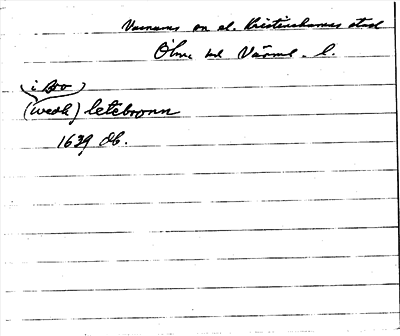 Varnums on al. Kristinehamns stad
Ölme hd Värml. l.
i Bro
(wedh) letebronn
1639 db.